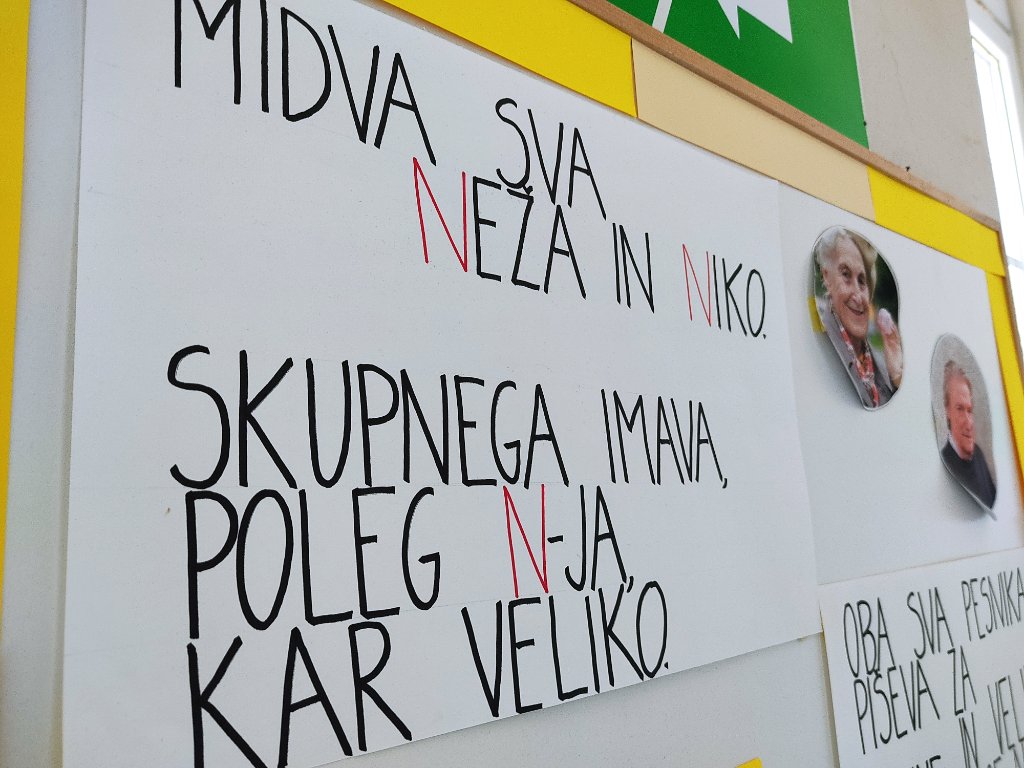 MIDVA SVA
NEŽA IN NIKO.
SKUPNEGA IMAVA,
POLEG N-JA,
KAR VELIKO.
OBA SVA PESNIKA
PIŠEVA ZA
IN